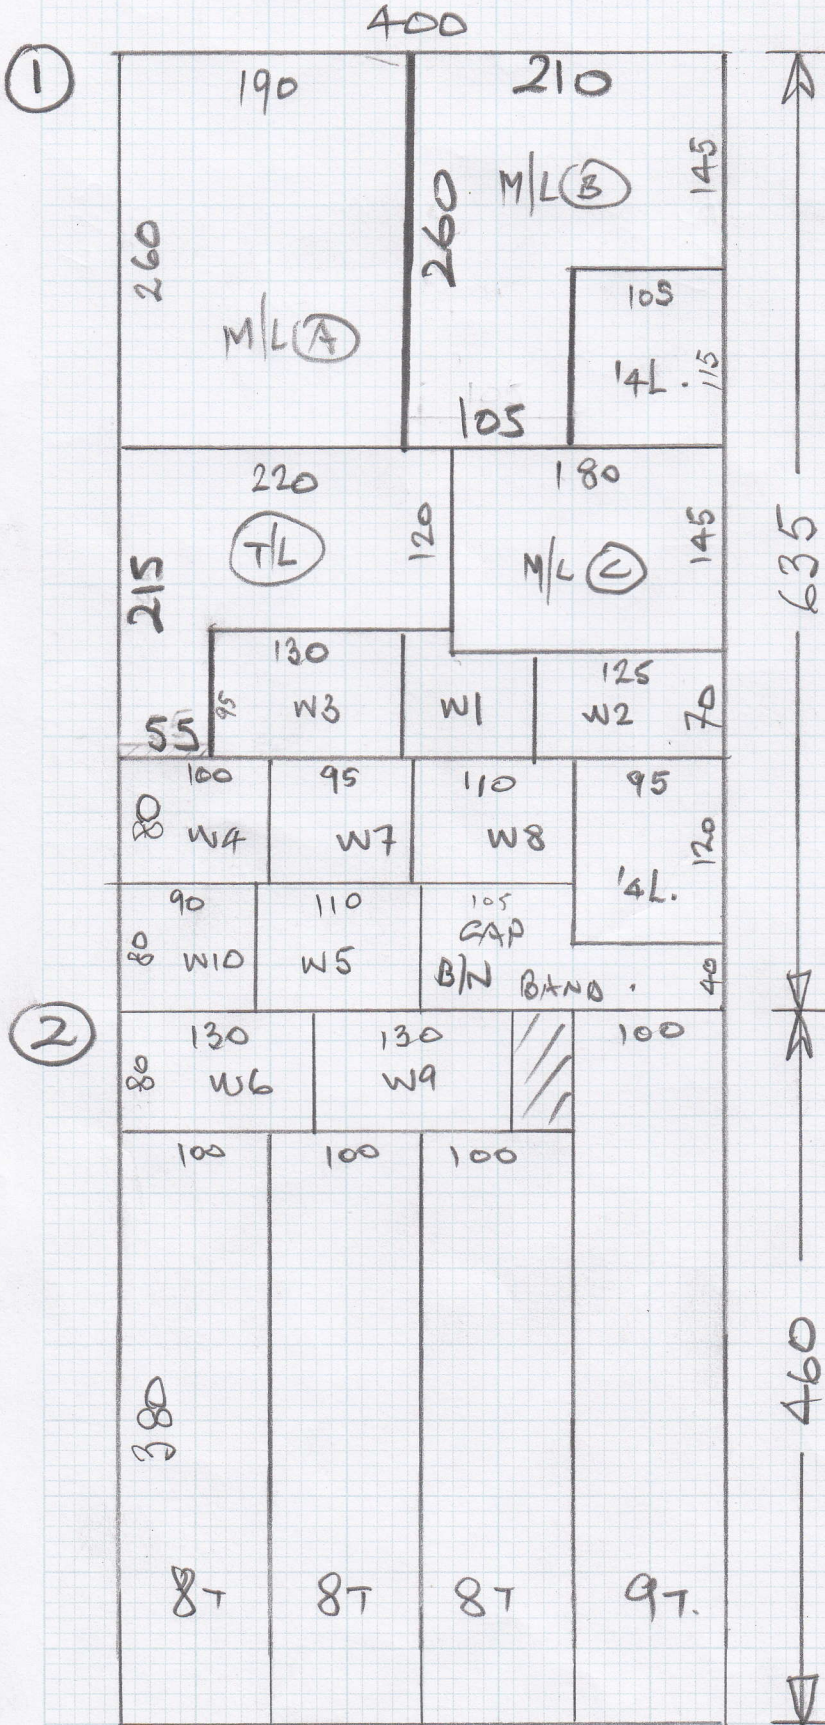 400
1
190
210
260
M/L A
260
M/L B
145
105
'4L.
115
105
220
T/L
120
215
55
180
M/L C
145
130
95
W3
W1
125
W2
70
635
100
80
W4
95
W7
110
W8
95
'4L.
120
90
80
W10
110
W5
105
CAP
B/N BAND.
40
2
130
80
W6
130
W9
100
100
100
100
380
460
8T
8T
8T
9T.